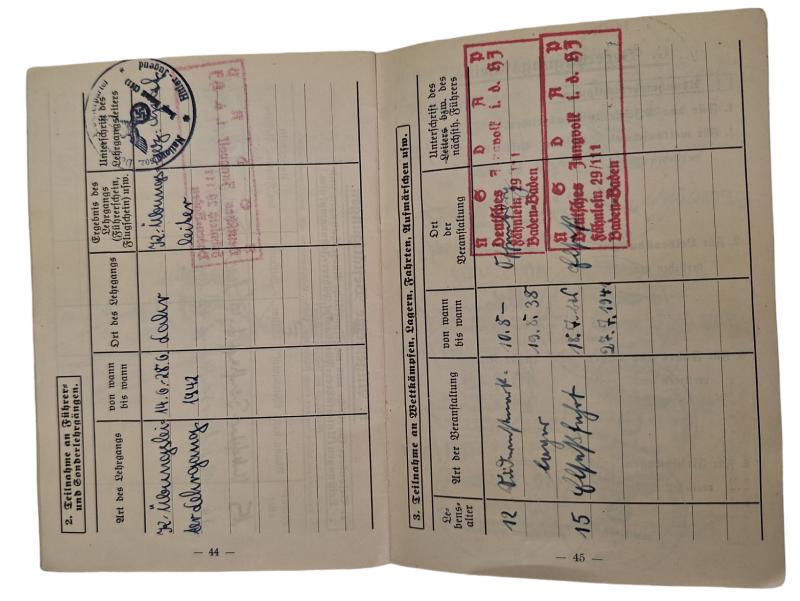 2. Teilnahme an Führer-
und Sonderlehrgängen.
Art des Lehrgangs
von wann
bis wann
Ort des Lehrgangs
Ergebnis des
Lehrgangs
(Führerschein,
Flugschein) usw.
Unterschrift des
Lehrgangsleiters
K: Übungslei-
ter Lehrgang
14.6.-28.6.
1942
Lahr
K: Übungs
leiter
Hitler-Jugend
— 44 —
3. Teilnahme an Wettkämpfen, Lagern, Fahrten, Aufmärschen usw.
Le-
bens-
alter
Art der Veranstaltung
von wann
bis wann
Ort
der
Veranstaltung
Unterschrift des
Leiters bzw. des
nächsth. Führers
12
Südwestmark-
lager
10.8-
19.8.38
N S D A P
Deutsches Jungvolk i. d. HJ
Fähnlein 29/111
Baden-Baden
15
18.7.
27.7.1941
N S D A P
Deutsches Jungvolk i. d. HJ
Fähnlein 29/111
Baden-Baden
— 45 —